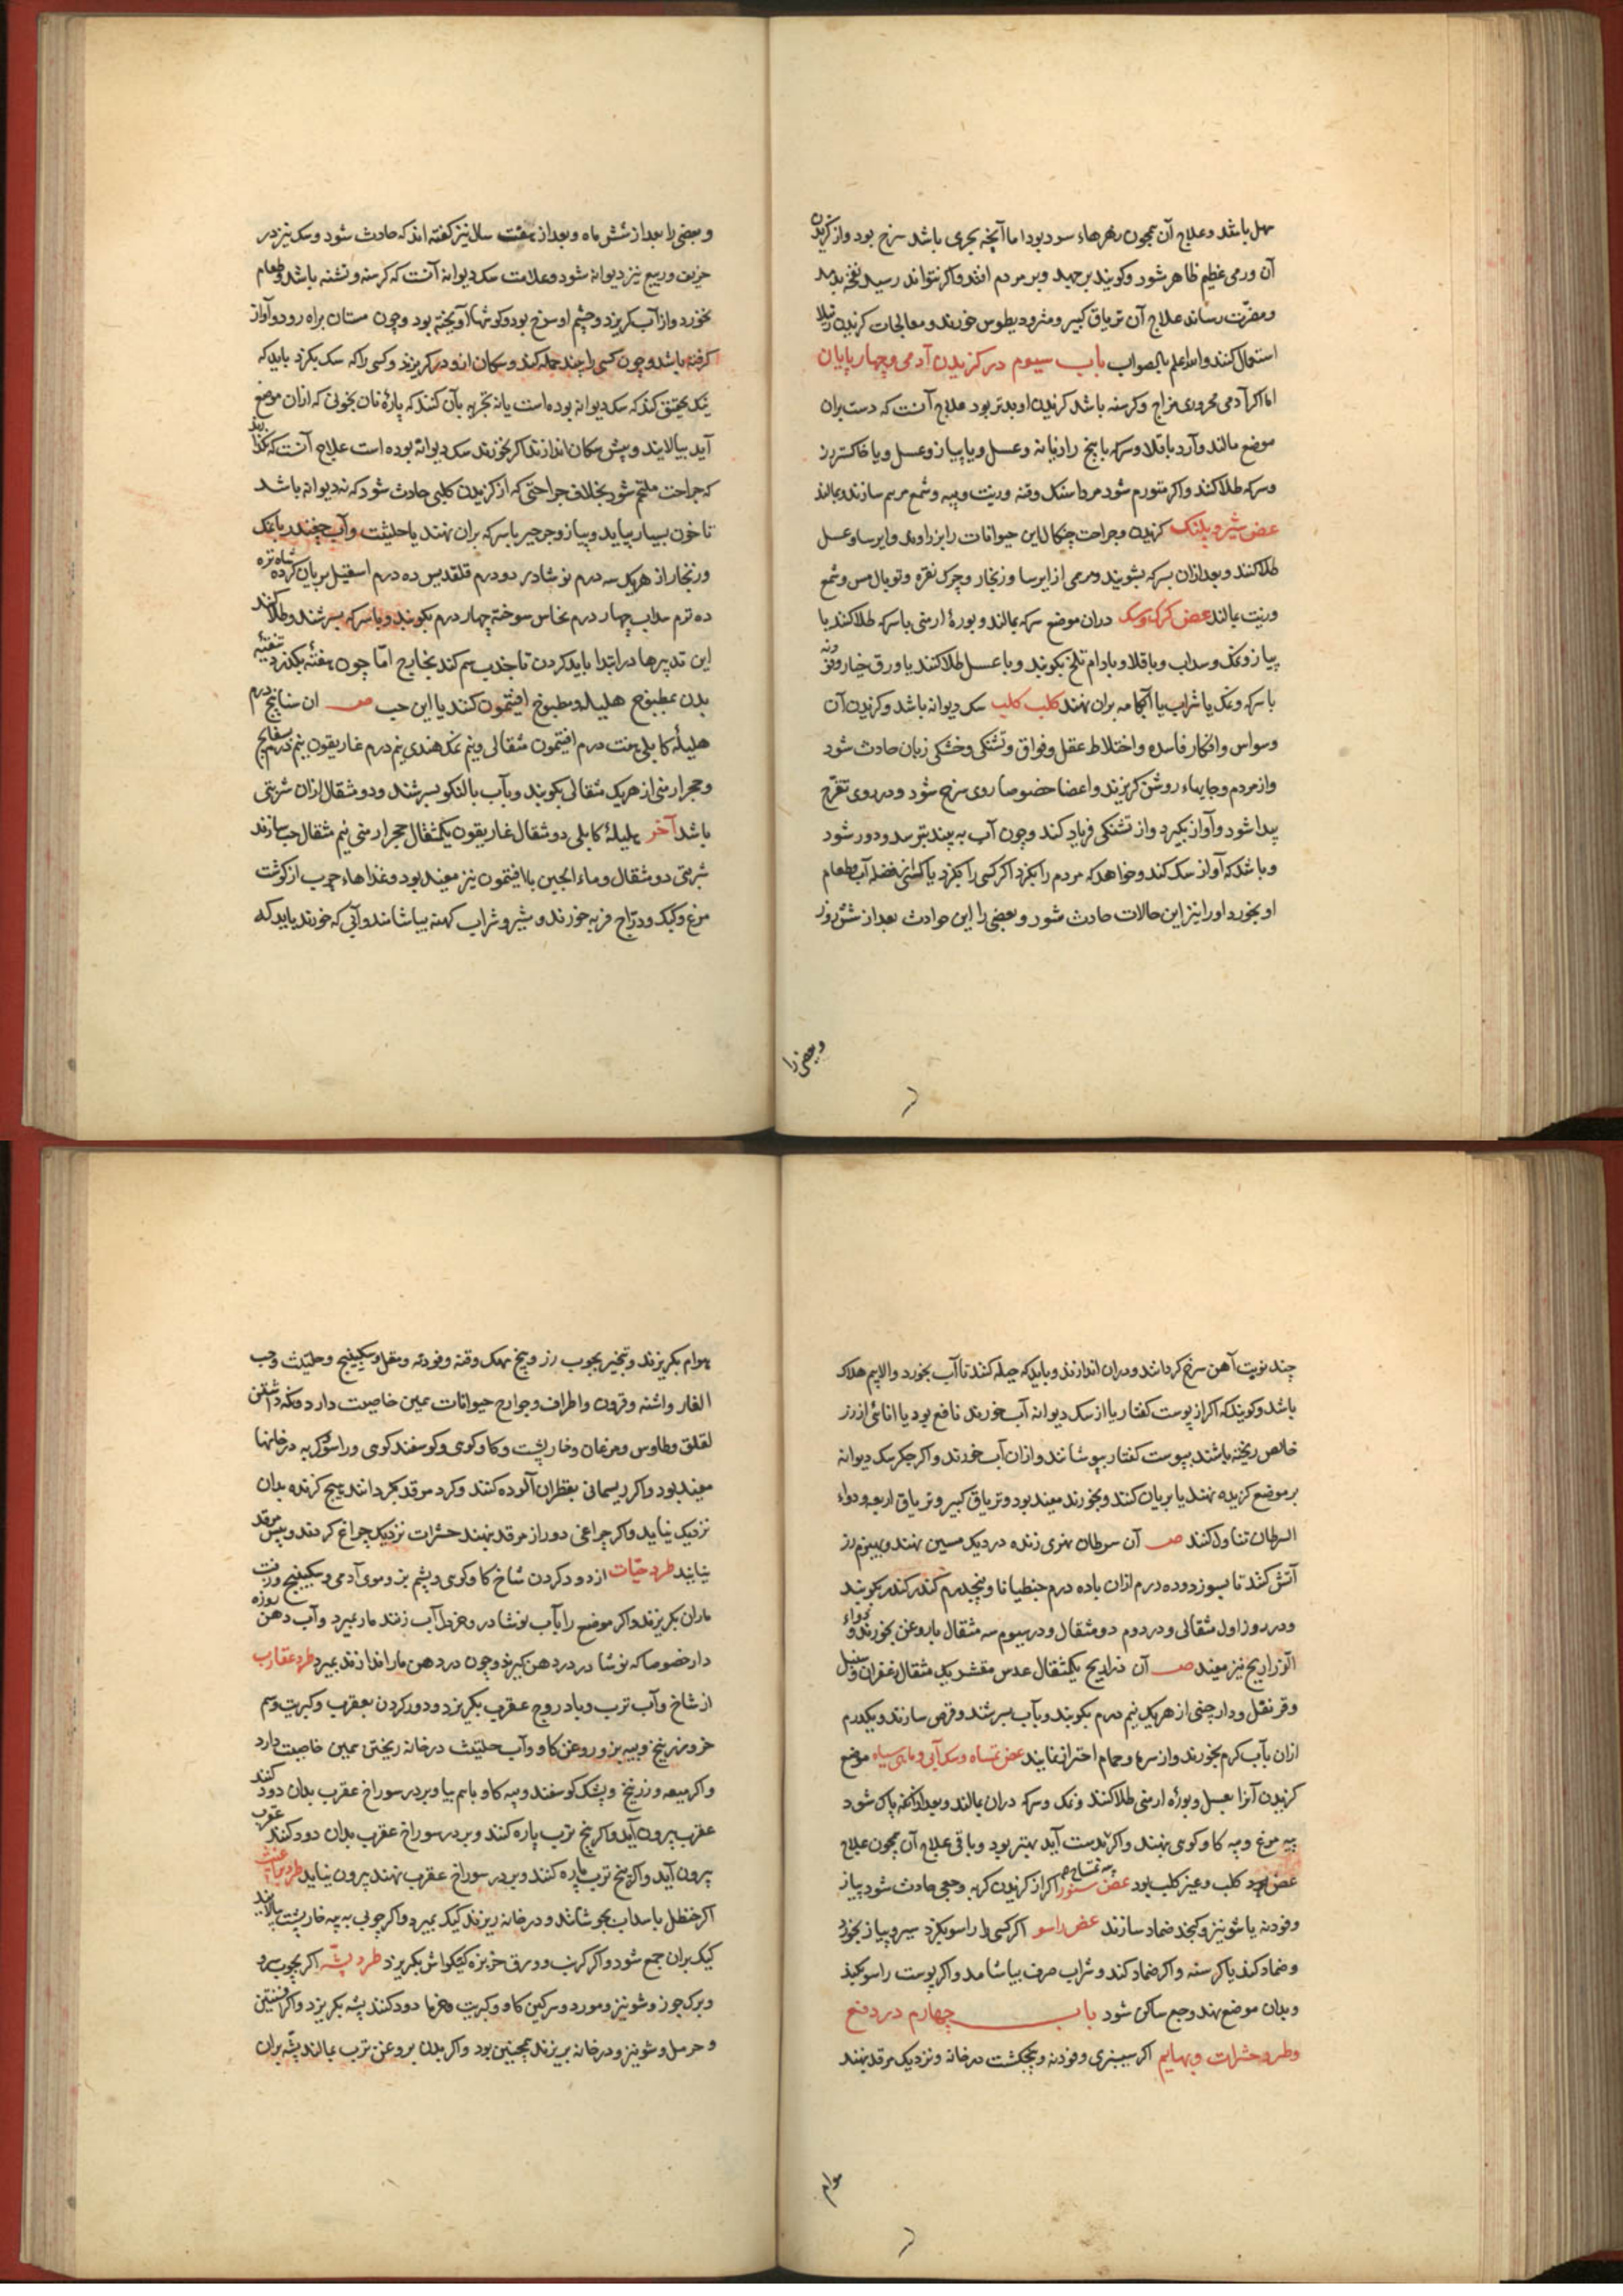 سهل باشد و علاج آن همچون زهرهاء سود بود اما آنچه بحری باشد سرخ بود و از گزیدن
آن ورمی عظیم ظاهر شود و گویند برجهد و بر مردم افتد و اگر نتواند رسید نفخه بدمد
و مضرت رساند علاج آن تریاق کبیر و مثرودیطوس خورند و معالجات گزیدن رتیلا
استعمال کنند والله اعلم بالصواب باب سیوم در گزیدن آدمی و چهارپایان
اما اگر آدمی محروری مزاج و گرسنه باشد گزیدن او بدتر بود علاج آنست که دست بران
موضع مالند و آرد باقلا و سرکه با بیخ رازیانه و عسل و یا پیاز و عسل و یا خاکستر رز
و سرکه طلا کنند و اگر متورم شود مرداسنک و قنه و زیت و پیه و شمع مرهم سازند و بمالند
عض شیر و پلنک گزیدن و جراحت چنکال این حیوانات را بزراوند و ایرسا و عسل
طلا کنند و بعد ازان بسرکه بشویند و مرهمی از ایرسا و زنجار و چرک نقره و توبال مس و شمع
و زیت بمالند عض گرک و سک دران موضع سرکه بمالند و بوره ارمنی با سرکه طلا کنند یا
پیاز و نمک و سداب و باقلا و بادام تلخ بکوبند و با عسل طلا کنند یا ورق خیار و فودنه
با سرکه و نمک یا شراب یا آبکامه بران نهند کلب کلب سک دیوانه باشد و گزیدن آن
وسواس و افکار فاسده و اختلاط عقل و فواق و تشنکی و خشکی زبان حادث شود
و از مردم و جایهاء روشن گریزند و اعضا خصوصا روی سرخ شود و در روی تقرح
پیدا شود و آواز بگیرد و از تشنکی فریاد کند و چون آب به بیند بترسد و دور شود
و باشد که آواز سک کند و خواهد که مردم را بگزد اگر کسی را بگزد یا کسی از فضله آب و طعام
او بخورد او را نیز این حالات حادث شود و بعضی را این حوادث بعد از شش روز
و بعضی را
و بعضی را بعد از شش ماه و بعد از هفت سال نیز گفته اند که حادث شود و سک نیز در
خریف و ربیع نیز دیوانه شود و علامت سک دیوانه آنست که گرسنه و تشنه باشد و طعام
نخورد و از آب گریزد و چشم او سرخ بود و گوشها آویخته بود و چون مستان براه رود و آواز
گرفته باشد و چون کسی را بیند حمله کند و سکان از و در گریزند و کسی را که سک بگزد باید که
نیک تحقیق کند که سک دیوانه بوده است یا نه تجربه بآن کنند که پاره نان بخونی که ازان موضع
آید بیالایند و پیش سکان اندازند اگر نخورند سک دیوانه بوده است علاج آنست که نگذارند
که جراحت ملتحم شود بخلاف جراحتی که از گزیدن کلبی حادث شود که نه دیوانه باشد
تا خون بسیار بیاید و پیاز و جرجیر با سرکه بران نهند یا حلتیت و آب چغندر با نمک
و زنجار از هریک سه درم نوشادر دو درم قلقدیس ده درم اسقیل بریان کرده شاه تره
ده درم سداب چهار درم نحاس سوخته چهار درم بکوبند و با سرکه بسرشند و طلا کنند
این تدبیرها در ابتدا باید کردن تا جذب سم کند بخارج اما چون هفته بگذرد تنقیه
بدن بمطبوخ هلیله و مطبوخ افتیمون کنند یا این حب ص ان سنا پنج درم
هلیله کابلی هشت درم افتیمون مثقالی و نیم نمک هندی نیم درم غاریقون نیم درم بسفایج
و حجر ارمنی از هریک مثقالی بکوبند و بآب بالنکو بسرشند و دو مثقال ازان شربتی
باشد آخر هلیله کابلی دو مثقال غاریقون یکمثقال حجر ارمنی نیم مثقال حب سازند
شربتی دو مثقال و ماء الجبن با افتیمون نیز مفید بود و غذاهاء چرب از گوشت
مرغ و کبک و دراج فربه خورند و شیر و شراب کهنه بیاشامند و آبی که خورند باید که
چند نوبت آهن سرخ گردانند و دران اندازند و باید که حیله کنند تا آب بخورد و الا بیم هلاک
باشد و گویند که اگر از پوست کفتار یا از سک دیوانه آب خورند نافع بود یا انائی از رز
خالص ریخته باشند بپوست کفتار بپوشانند و ازان آب خورند و اگر جکر سک دیوانه
بر موضع گزیده نهند یا بریان کنند و بخورند مفید بود و تریاق کبیر و تریاق اربعه و دواء
السرطان تناول کنند ص آن سرطان نهری زنده در دیک مسین نهند و بهیزم رز
آتش کنند تا بسوزد و ده درم ازان با ده درم جنطیانا و پنجدرم کندر بکوبند
و در روز اول مثقالی و در دوم دو مثقال و در سیوم سه مثقال با روغن بخورند و دواء
الذراریح نیز مفید ص آن ذراریح یکمثقال عدس مقشر یک مثقال زعفران و سنبل
و قرنفل و دارچینی از هریک نیم درم بکوبند و بآب بسرشند و قرص سازند و یکدرم
ازان بآب گرم بخورند و از سرما و حمام احتراز نمایند عض تمساح و سک آبی و ماهی سیاه موضع
گزیدن آنرا بعسل و بوره ارمنی طلا کنند و نمک و سرکه دران بمالند و بعد از آنکه پاک شود
پیه مرغ و پیه کاو کوی بنهند و اگر بدست آید بهتر بود و باقی علاج آن همچون علاج
پیه تمساح
عض کلب و غیر کلب بود عض سنور اگر از گزیدن گربه وجعی حادث شود پیاز
و فودنه یا شونیز و کنجد ضماد سازند عض راسو اگر کسی را راسو بگزد سیر و پیاز بخورد
و ضماد کند یا گرسنه و اگر ضماد کند و شراب صرف بیاشامد و اگر پوست راسو بکیند
و بدان موضع نهند وجع ساکن شود باب چهارم در دفع
و طرد حشرات و بهایم اگر سیسنبری و فودنه و پنجنکشت در خانه و نزدیک مرقد بنهند
هوام
هوام بگریزند و تبخیر بچوب رز و بیخ مهک و قنه و فودنه و مقل و سکبینج و حلتیت و حب
الغار و اشنه و قرون و اطراف و جوارح حیوانات همین خاصیت دارد و نگه داشتن
لقلق و طاوس و مرغان و خارپشت و کاو کوی و کوسفند کوی و راسو و گربه در خانها
مفید بود و اگر ریسمانی بقطران آلوده کنند و گرد مرقد بگردانند هیچ گزنده بدان
نزدیک نیاید و اگر چراغی دور از مرقد بنهند حشرات نزدیک چراغ گردند و پیش مرقد
نیایند طرد حیات از دود کردن شاخ کاو کوی و پشم بز و موی آدمی و سکبینج و زفت
ماران بگریزند و اگر موضع را بآب نوشادر و خردل آب زنند مار بمیرد و آب دهن روزه
دار خصوصا که نوشادر در دهن گیرند و چون در دهن مار اندازند بمیرد طرد عقارب
از شاخ و آب ترب و بادروج عقرب بگریزد و دود کردن بعقرب و کبریت و سم
خر و زرنیخ و پیه بز و روغن کاو و آب حلتیت در خانه ریختن همین خاصیت دارد
و اگر میعه و زرنیخ و پشک کوسفند و پیه کاو باهم بیامیزند و بر در سوراخ عقرب بدان دود کنند
عقرب بیرون آید و اگر بیخ ترب پاره کنند و بر در سوراخ عقرب بدان دود کنند عقرب
بیرون آید و اگر بیخ ترب پاره کنند و بر در سوراخ عقرب نهند بیرون نیاید طرد براغیث
اگر حنظل یا سداب بجوشانند و در خانه ریزند کیک بمیرد و اگر چوبی به پیه خارپشت بیالایند
کیک بران جمع شود و اگر کرنب و ورق خرزهره کیکواش بگریزد طرد پشه اگر بچوب سرو
و برک جوز و شونیز و مورد و سرکین کاو و کبریت و خرما دود کنند پشه بگریزد و اگر افسنتین
و حرمل و شونیز و در خانه بریزند همچنین بود و اگر بدن بروغن ترب بمالند پشه بران